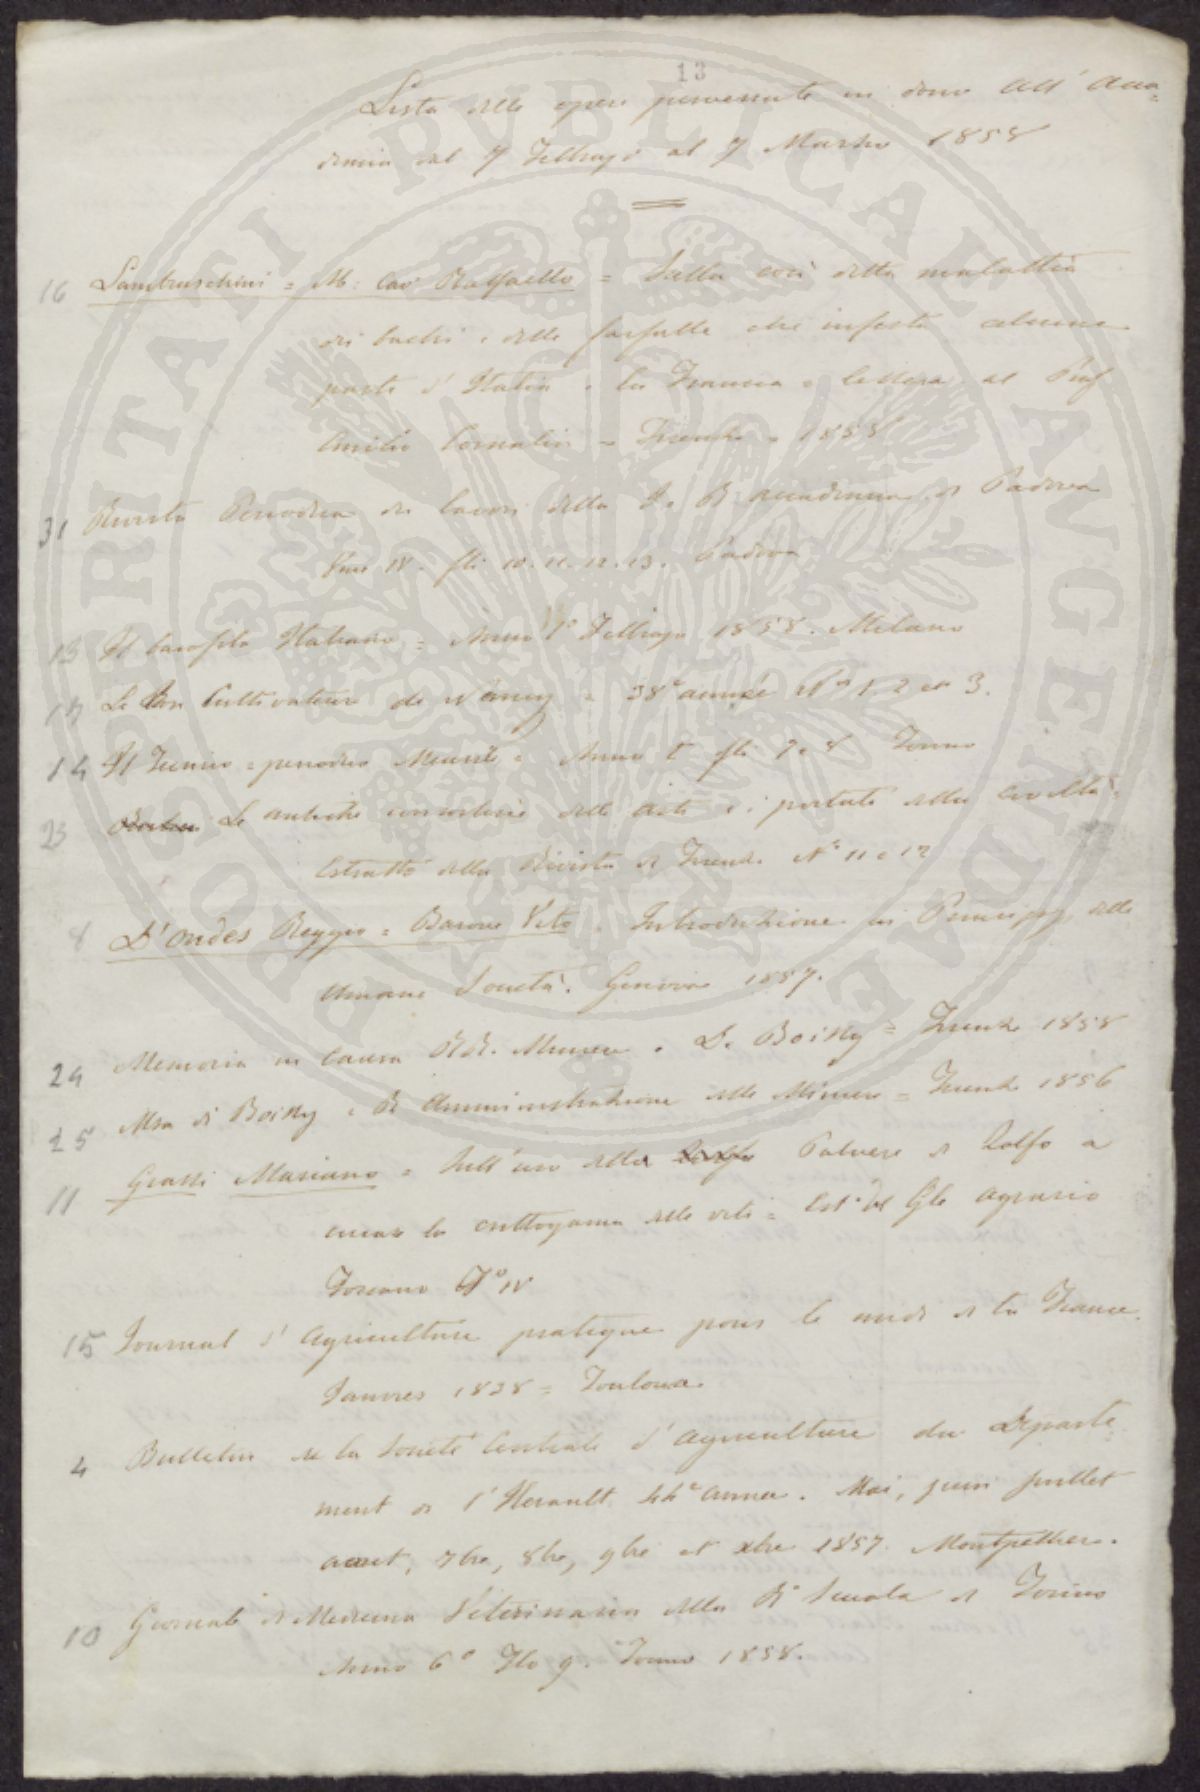 13
Lista delle opere pervenute in dono all' Acca=
demia dal 7 Febbrajo al 7 Marzo 1858
16 Lambruschini = M: Cav Raffaello = Sulla così detta malattia
dei bachi e delle farfalle che infesta alcune
parti d' Italia e la Francia = lettera al Prof
Emilio Cornalia = Firenze = 1858
31 Rivista Periodica dei lavori della I. R. Accademia di Padova
18. fli 10. 11. 12. 13. Padova
13 Il bacofilo Italiano = Anno 1° Febbrajo 1858. Milano
17 Le Bon Cultivateur de Nancy = 38e année Nos 1. 2 et 3.
14 Il Tecnico = periodico Mensile = Anno I fli 7 e 8 Torino
23 Le antiche consorterie delle arti e i portati della civiltà =
Estratto della Rivista di Firenze N° 11 e 12
8 D' Ondes Reggio = Barone Vito = Introduzione ai Principj delle
Umane Società. Genova 1857.
24 Memoria in causa RR. Miniere e De Boissy = Firenze 1858
25 Mra di Boissy e R Amministrazione delle Miniere = Firenze 1856
11 Grassi Mariano = Sull' uso della Zolfo Polvere di Zolfo a
curare la crittogama delle viti = Est. del Gle Agrario
Toscano To IV
15 Journal d' Agriculture pratique pour le midi de la France.
Janvier 1858 = Toulouse
4 Bulletin de la Societé Centrale d' Agriculture du Departe=
ment de l' Herault 44e année. Mai, juin juillet
aout, 7bre, 8bre, 9bre et xbre 1857. Montpellier.
10 Giornale di Medicina Veterinaria della Ra Scuola di Torino
Anno 6° Flo 9. Torino 1858.
PROSPERITATI PVBLICAE AVGENDAE